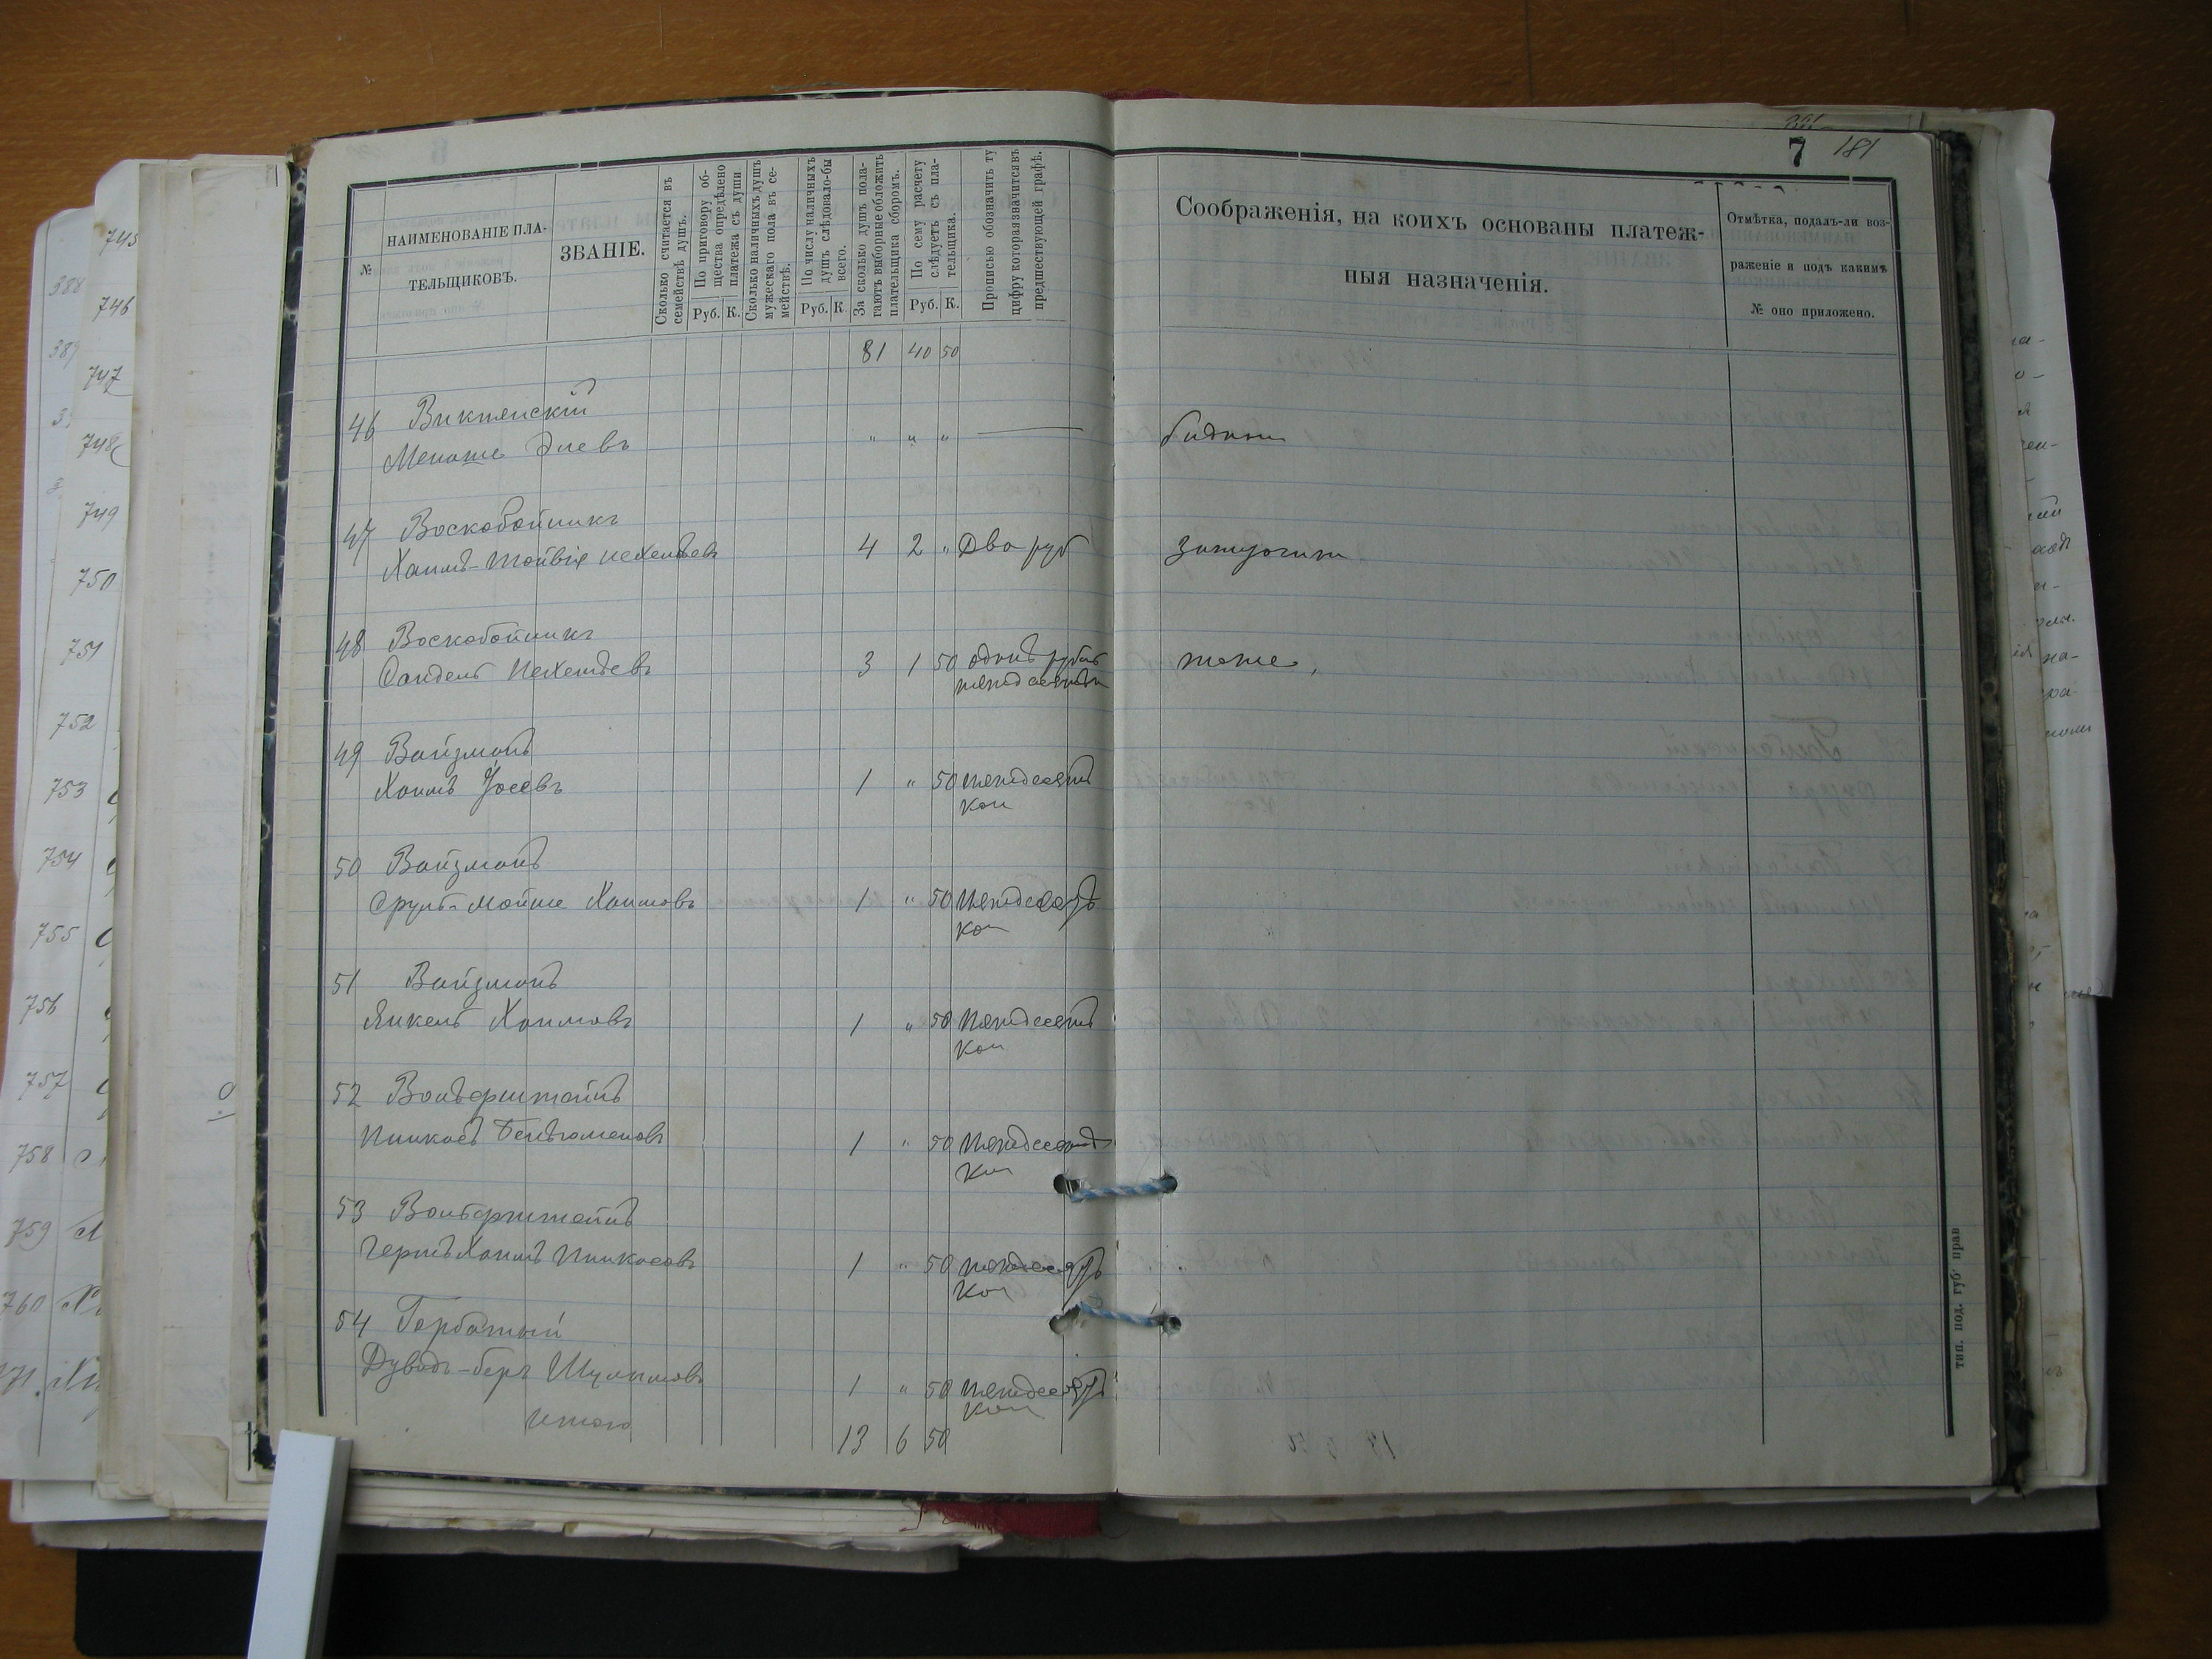 7 181
№
НАИМЕНОВАНІЕ ПЛА-
ТЕЛЬЩИКОВЪ.
ЗВАНІЕ.
Сколько считается въ
семействѣ душъ.
По приговору об-
щества опредѣлено
платежа съ души.
Руб. К.
Сколько наличныхъ душъ
мужескаго пола въ се-
мействѣ.
По числу наличныхъ
душъ слѣдовало-бы
всего.
Руб. К.
За сколько душъ пола-
гаютъ выборные обложить
плательщика сборомъ.
По сему расчету
слѣдуетъ съ пла-
тельщика.
Руб. К.
Прописью обозначить ту
цифру которая значится въ
предшествующей графѣ.
Соображенія, на коихъ основаны платеж-
ныя назначенія.
Отмѣтка, подалъ-ли воз-
раженіе и подъ какимъ
№ оно приложено.
81 40 50
46
Менаше Элевъ " " "
47 Воскобойникъ
Хаимъ-Тойвія 4 2 " Два руб
48 Воскобойникъ
3 1 50 одинъ рубль
пятдесятъ
тоже
49 Вайзманъ
Хаимъ Іосевъ 1 " 50 пятдесятъ
коп
50 Вайзманъ
Сруль-Мойше Хаимовъ 1 " 50 пятдесятъ
коп
51 Вайзманъ
Янкель Хаимовъ 1 " 50 пятдесятъ
коп
52
Пинкасъ 1 " 50 пятдесятъ
коп
53
Гершъ Хаимъ Пинкасовъ 1 " 50 пятдесятъ
коп
54 Горбатый
Дувидъ-беръ Шулимовъ 1 " 50 пятдесятъ
коп
Итого 13 6 50
тип. под. губ. прав
745
388
746
747
748
749
750
751
752
753
754
755
756
757
758
759
760